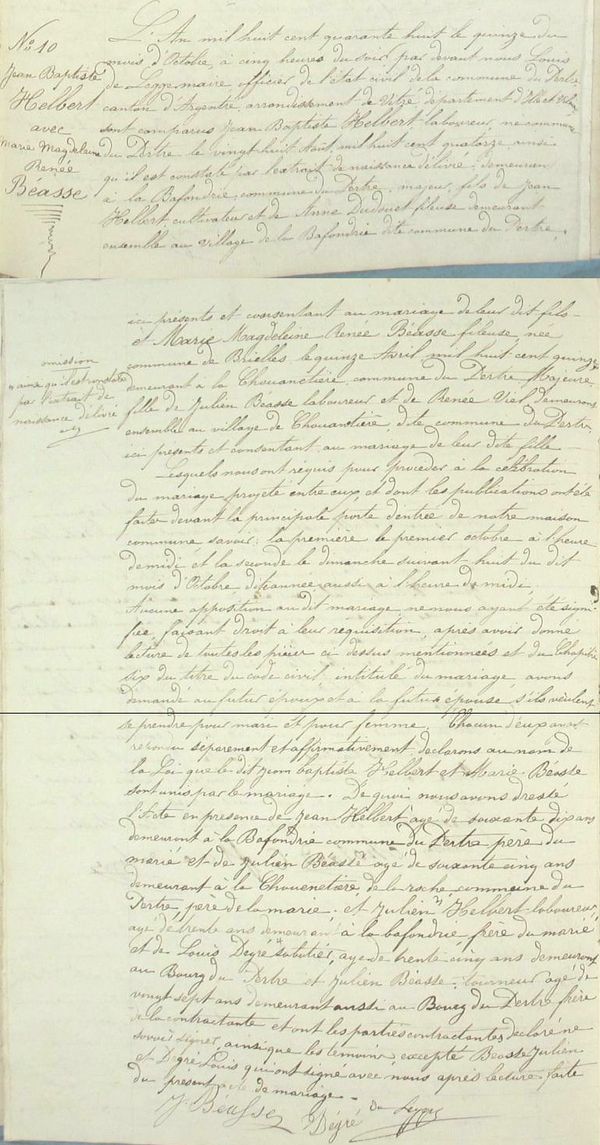 N° 10
Jean Baptiste
Helbert
avec
Marie Magdeleine
Renée
Béasse
L'An mil huit cent quarante huit le quinze du
mois d'Octobre, à cinq heures du soir, par devant nous Louis
de Legge maire officier de l'état civil de la commune du Pertre
canton d'Argentré, arrondissement de Vitré, département d'Ille et Vilaine
sont comparus Jean Baptiste Helbert laboureur, né commune
du Pertre le vingt huit Aout, mil huit cent quatorze ainsi
qu'il est constaté par l'extrait de naissance délivré, demeurant
à la Bafondrie, commune du Pertre, majeur, fils de Jean
Helbert cultivateur et de Anne Dudouet fileuse demeurant
ensemble au village de la Bafondrie dite commune du Pertre,
ici présents et consentant au mariage de leur dit fils
et Marie Magdeleine Renée Béasse fileuse, née
commune de Brielles, le quinze Avril mil huit cent quinze
omission
ainsi qu'il est constaté
par l'extrait de
naissance délivré
demeurant à la Chouanetière, commune du Pertre Majeure,
fille de Julien Béasse laboureur et de Renée Viel demeurons
ensemble au village de Chouantière, dite commune du Pertre,
ici présents et consentant au mariage de leur dite fille
Lesquels nous ont réquis pour procéder à la célébration
du mariage projeté entre eux, et dont les publications ont été
faites devant la principale porte d'entrée de notre maison
commune savoir: la première le premier octobre à l'heure
de midi et la seconde le dimanche suivant huit du dit
mois d'Octobre dite année aussi à l'heure de midi.
Aucune opposition au dit mariage ne nous ayant été signi-
fiée, faisant droit à leur réquisition, après avoir donné
lecture de toutes les pièces ci dessus mentionnées et du Chapitre
six du titre du code civil intitulé du mariage, avons
demandé au futur époux et à la future épouse s'ils veulent
se prendre pour mari et pour femme, Chacun d'eux ayant
répondu séparement et affirmativement declarons au nom de
la Loi que le dit Jean baptiste Helbert et Marie Béasse
sont unis par le mariage. De quoi nous avons dressé
l'Acte en présence de Jean Helbert agé de souxante dix ans
demeurant à la Bafondrie commune du Pertre père du
marié et de Julien Béasse agé de soixante cinq ans
demeurant à la Chouenetière, de la roche, commune du
Pertre, père de la mariée. et Julien Helbert laboureur
agé de trente ans demeurant à la bafondrie frère du marié
et de Louis Degré sabotier, agé de trente cinq ans demeurant
au Bourg du Pertre et Julien Béasse tourneur agé de
vingt sept ans demeurant aussi au Bourg du Pertre frère
de la contractante et ont les parties contractantes, declaré ne
savoir signer, ainsi que les temoins excepté Beasse Julien
et Degré Louis qui ont signé avec nous après lecture faite
du présent acte de mariage.
J. Béasse Dégré De Legge